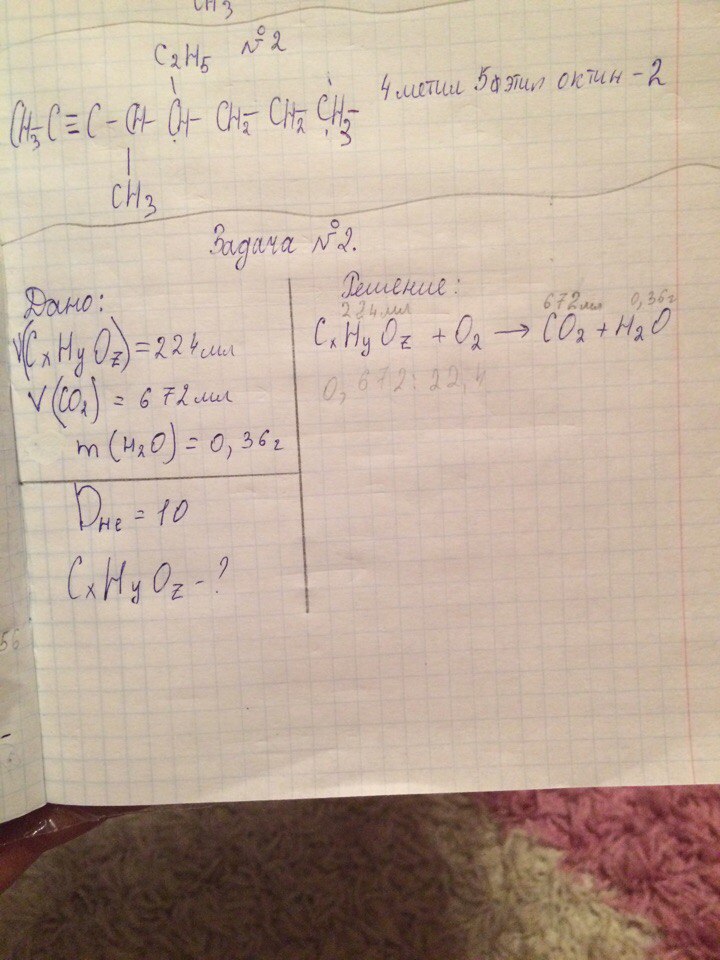 CH3
№2
C2H5
CH3-C≡C-CH-CH-CH2-CH2-CH3 4 метил 5 этил октин-2
CH3
Задача №2.
Дано:
V(CxHyOz)=224мл
V(CO2) = 672мл
m(H2O)=0,36г
DHe=10
CxHyOz-?
Решение:
224мл 672мл 0,36г
CxHyOz + O2 → CO2 + H2O
0,672:22,4
56